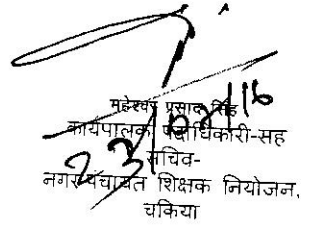 महेश्वर प्रसाद सिंह
कार्यपालक पदाधिकारी-सह
सचिव-
नगर पंचायत शिक्षक नियोजन,
चकिया